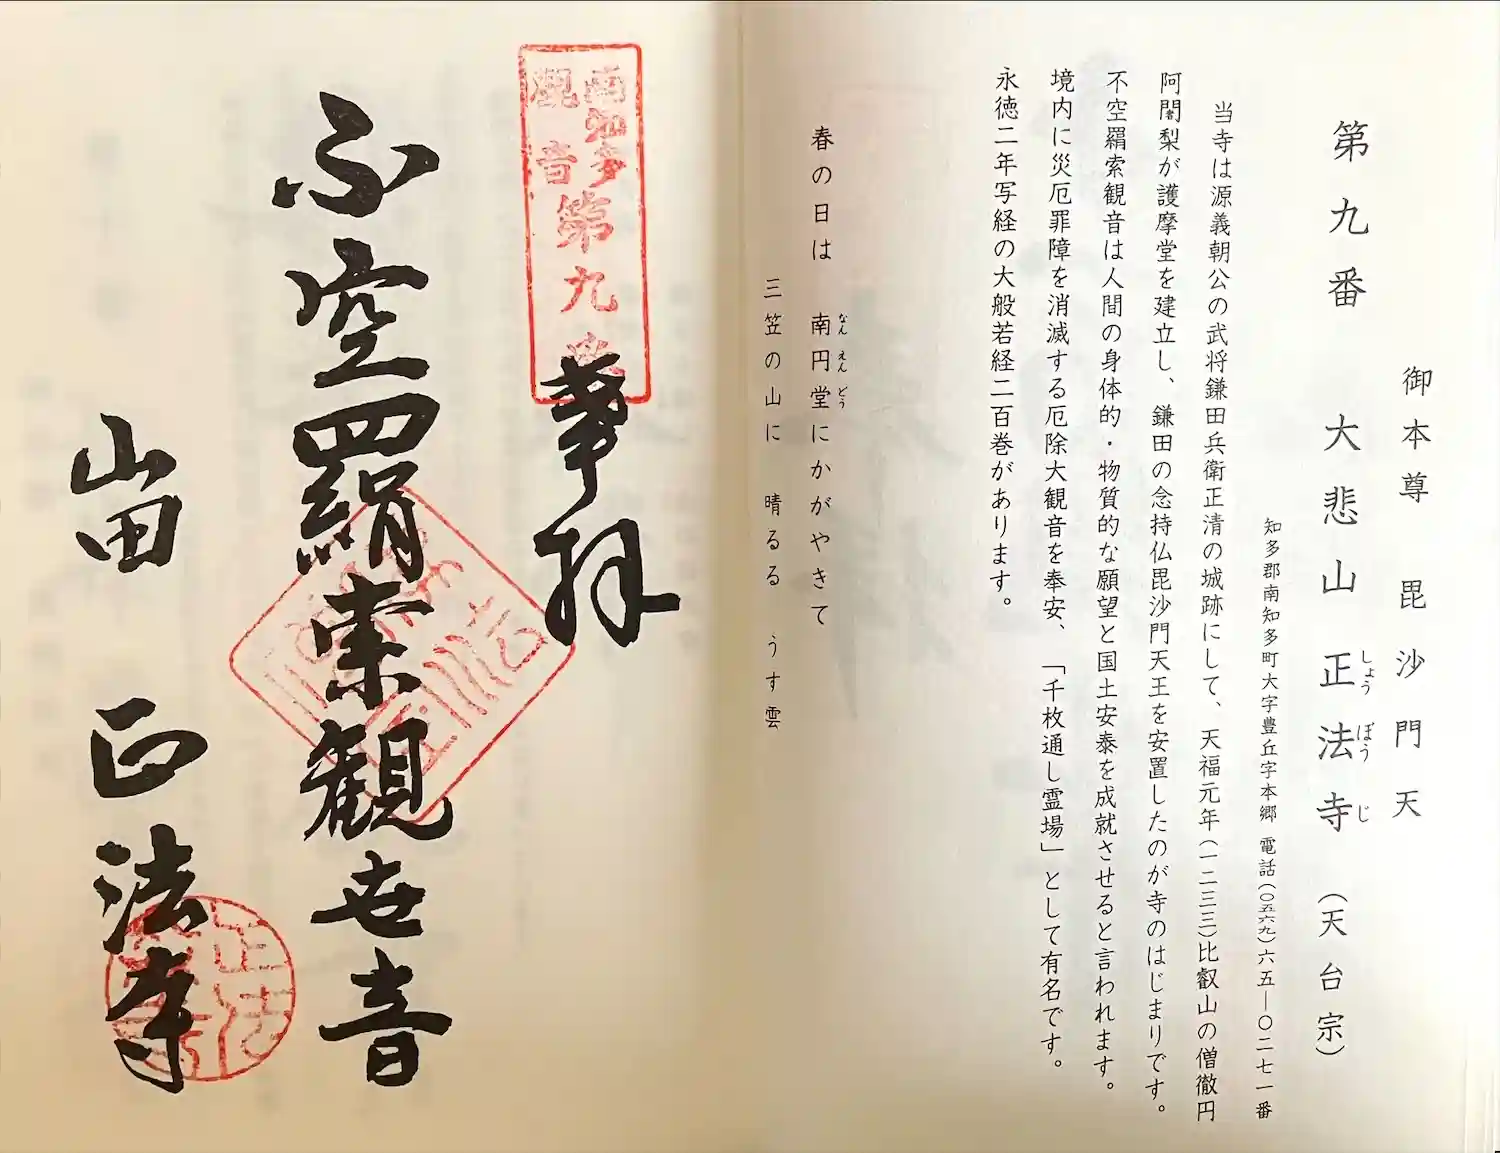 御本尊　毘沙門天
第九番　大悲山　正法寺　（天台宗）
しょう　ぼう　じ
知多郡南知多町大字豊丘字本郷　電話（〇五六九）六五―〇二七一番
当寺は源義朝公の武将鎌田兵衛正清の城跡にして、天福元年（一二三三）比叡山の僧徹円
阿闍梨が護摩堂を建立し、鎌田の念持仏毘沙門天王を安置したのが寺のはじまりです。
不空羂索観音は人間の身体的・物質的な願望と国土安泰を成就させると言われます。
境内に災厄罪障を消滅する厄除大観音を奉安、「千枚通し霊場」として有名です。
永徳二年写経の大般若経二百巻があります。
春の日は　南円堂にかがやきて
なん　えん　どう
三笠の山に　晴るる　うす雲
南知多
観音
第九
奉拝
不空羂索観世音
山田　正法寺